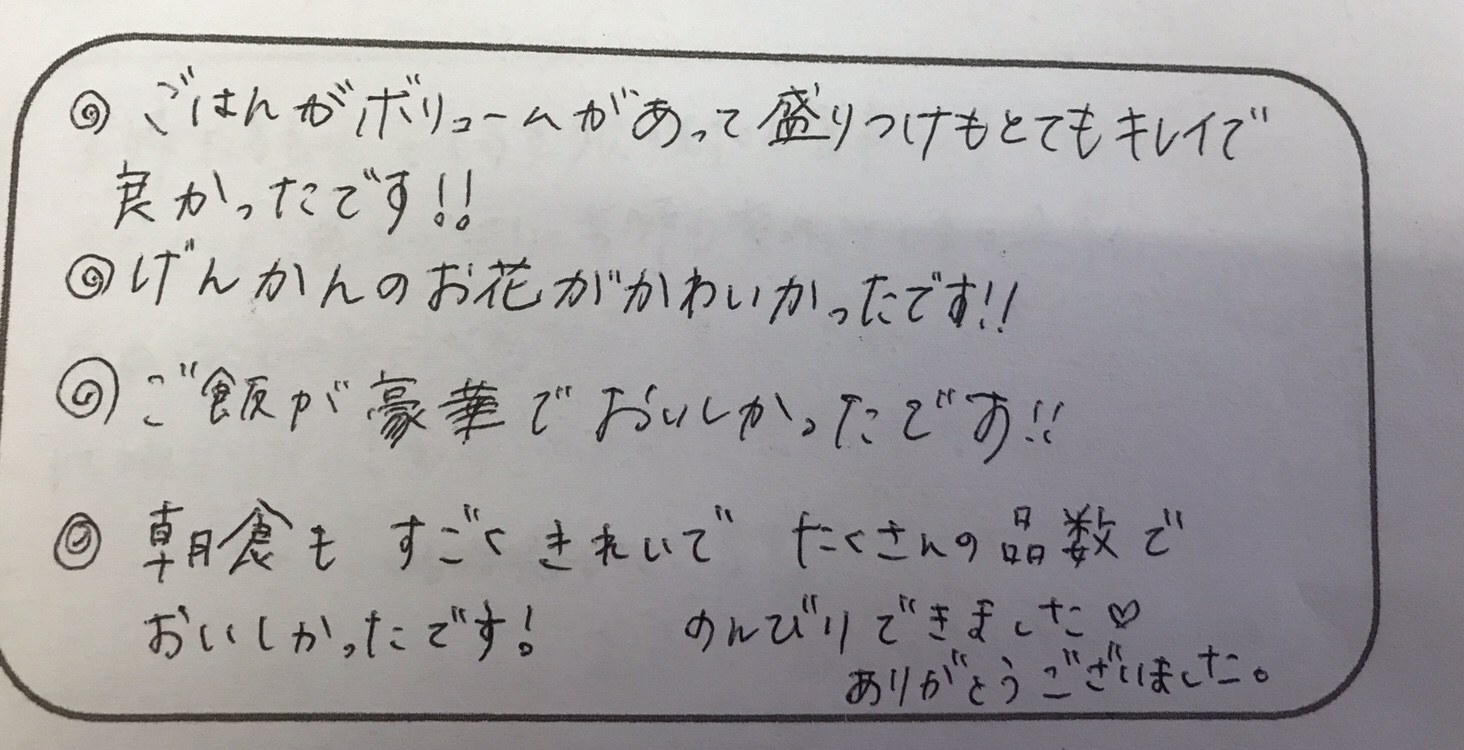 ◎ ごはんがボリュームがあって盛りつけもとてもキレイで
良かったです!!
◎ げんかんのお花がかわいかったです!!
◎ ご飯が豪華でおいしかったです!!
◎ 朝食も すごく きれいで たくさんの品数で
おいしかったです! のんびりできました♡
ありがとうございました。